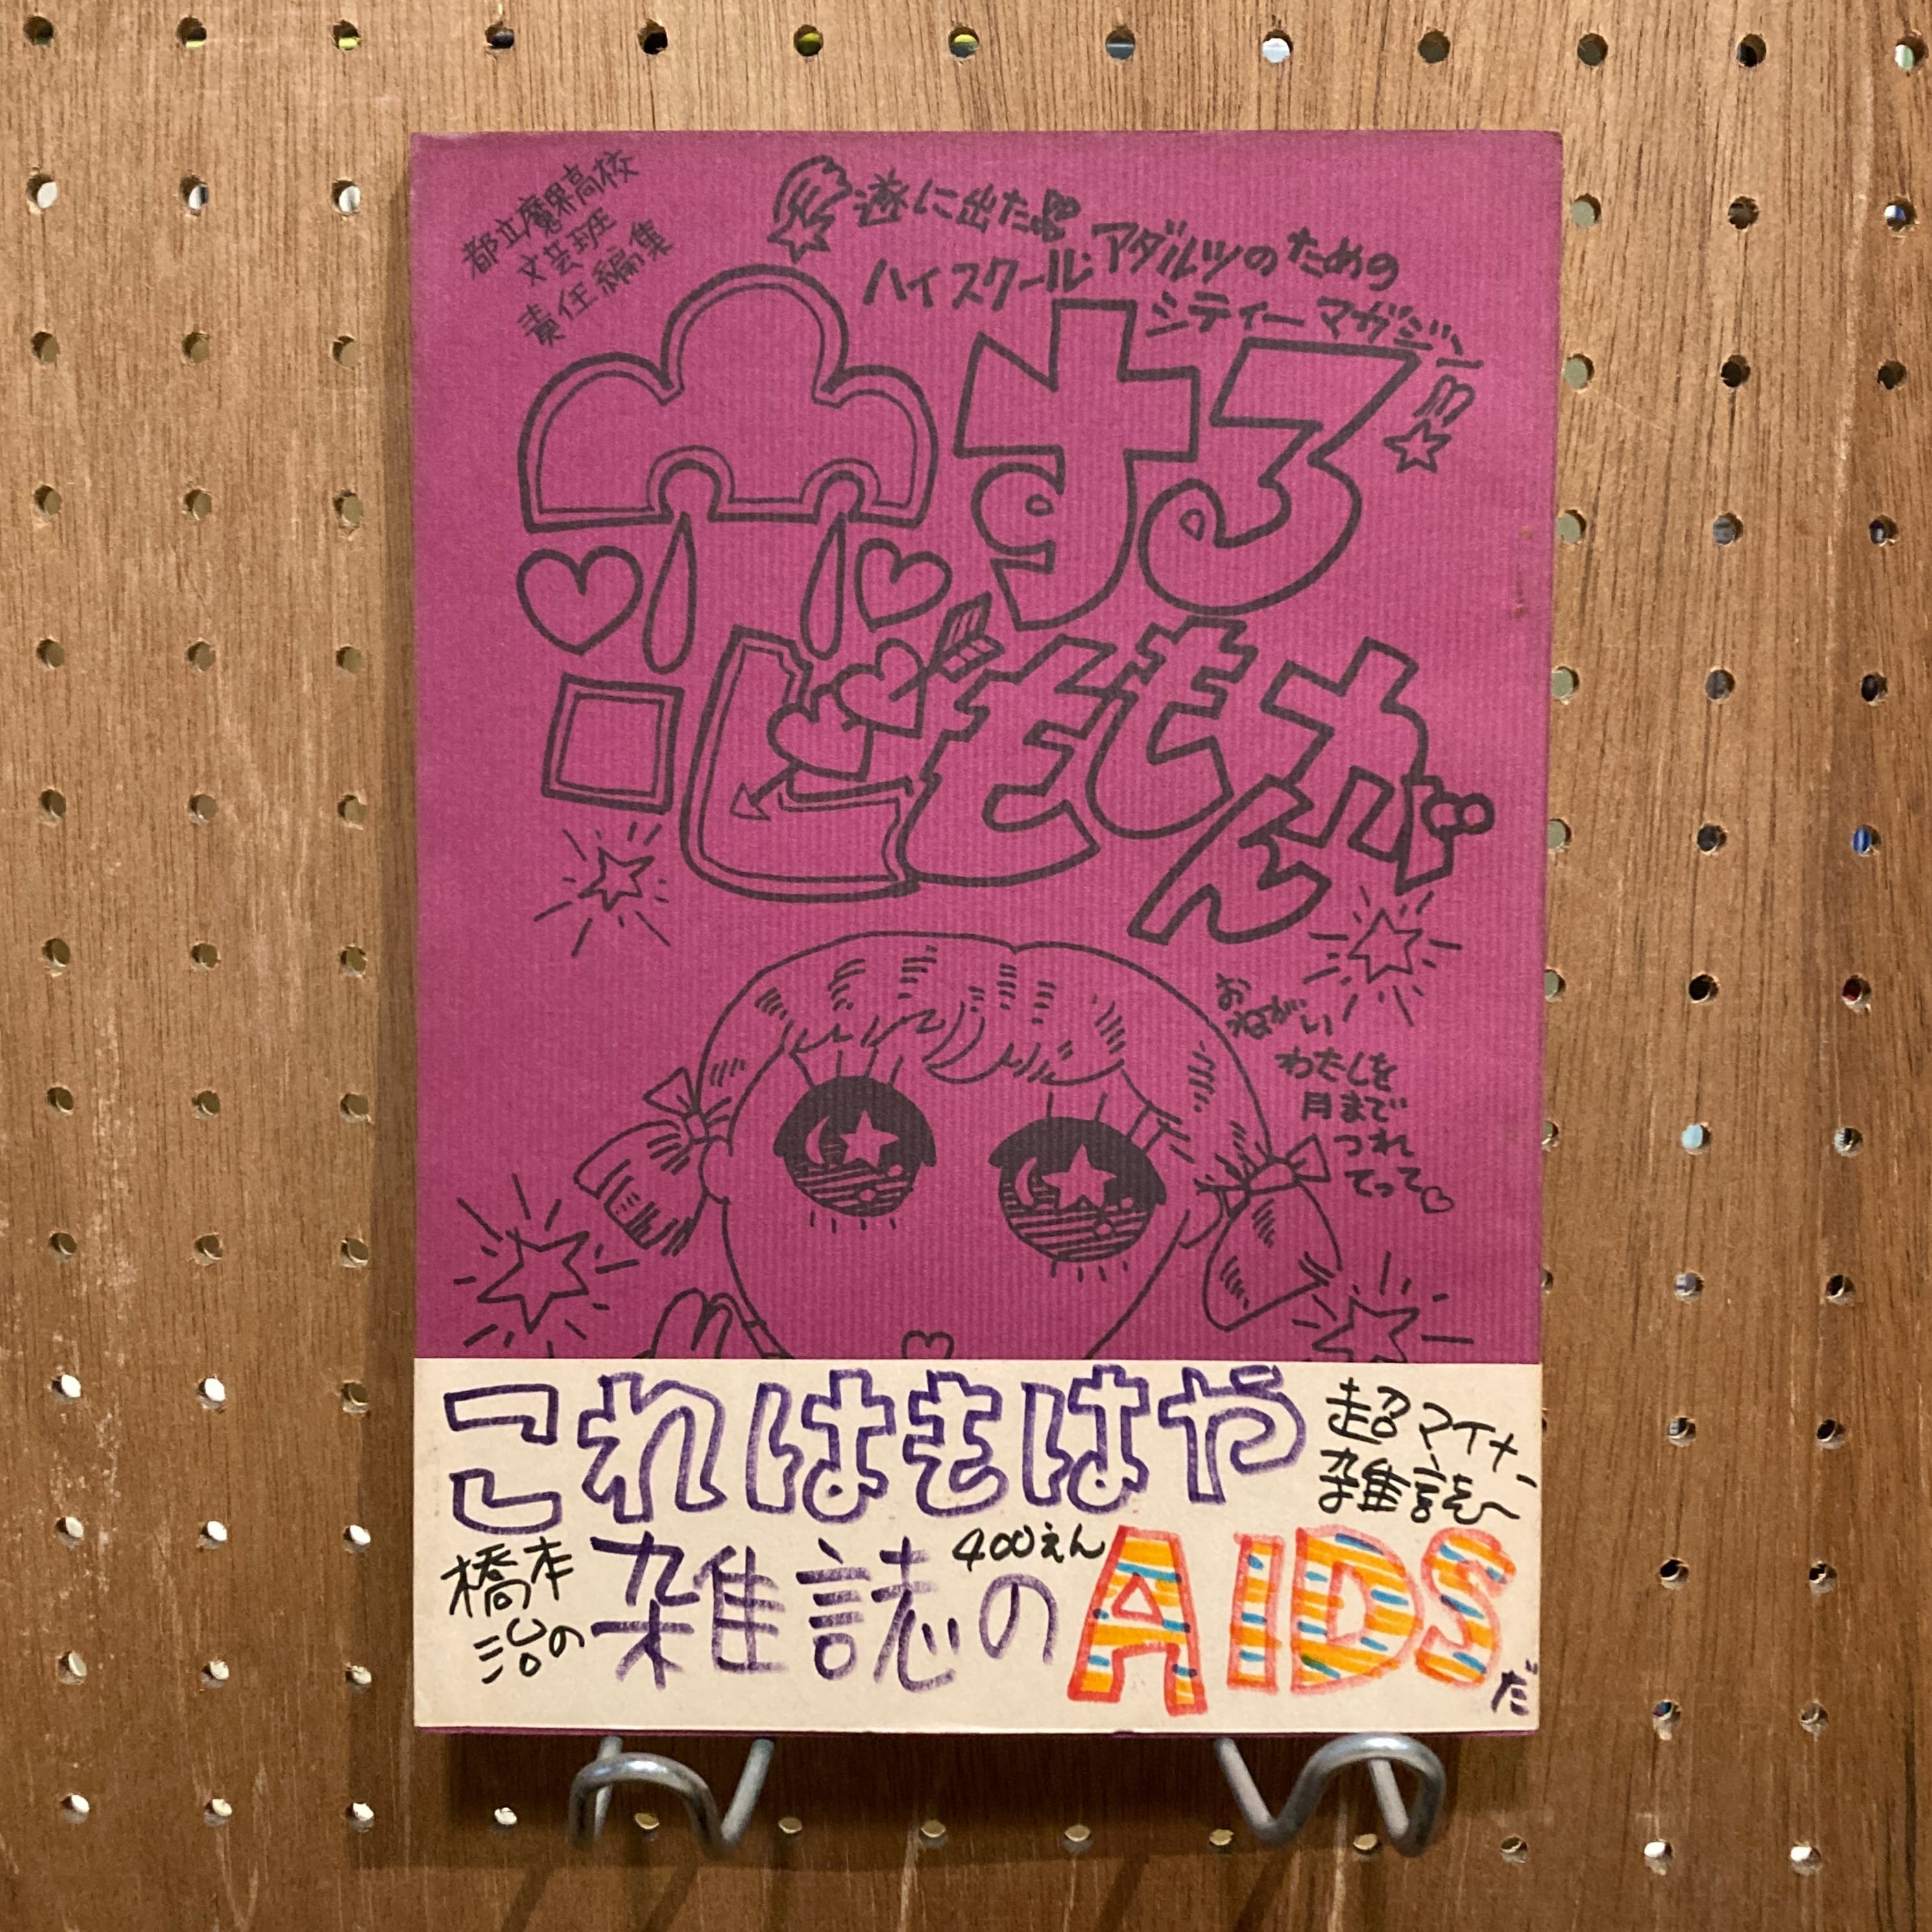 都立魔界高校
文芸班
責任編集
遂に出た
ハイスクール・アダルツのための
シティーマガジン
恋するももんが
おねがい
わたしを
月まで
つれ
てって♡
これはもはや
超マイナー
雑誌
橋本
治の
雑誌の
400えん
AIDS
だ